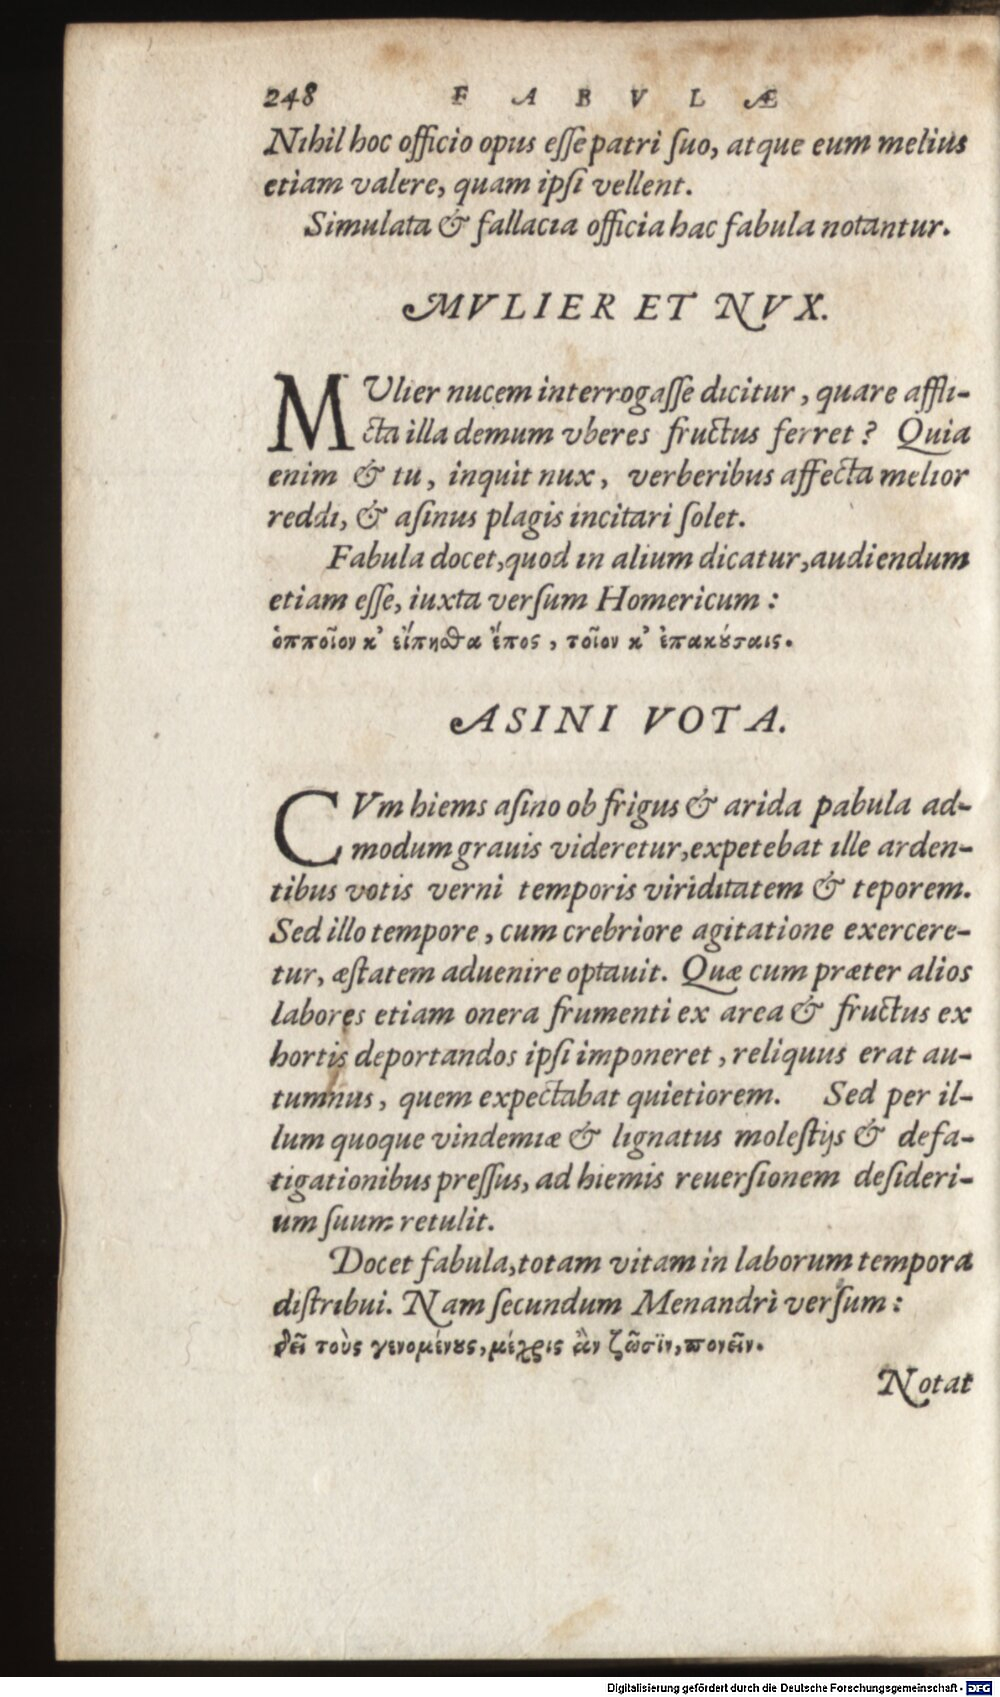 248 FABVLÆ
Nihil hoc officio opus esse patri suo, atque eum melius
etiam valere, quam ipsi vellent.
Simulata & fallacia officia hac fabula notantur.
MVLIER ET NVX.
MVlier nucem interrogasse dicitur, quare affli-
cta illa demum vberes fructus ferret? Quia
enim & tu, inquit nux, verberibus affecta melior
reddi, & asinus plagis incitari solet.
Fabula docet, quod in alium dicatur, audiendum
etiam esse, iuxta versum Homericum:
ὁπποῖον κ' εἴπηθα ἔπος, τοῖον κ' ἐπακούσαις.
ASINI VOTA.
CVm hiems asino ob frigus & arida pabula ad-
modum grauis videretur, expetebat ille arden-
tibus votis verni temporis viriditatem & teporem.
Sed illo tempore, cum crebriore agitatione exercere-
tur, æstatem aduenire optauit. Quæ cum præter alios
labores etiam onera frumenti ex area & fructus ex
hortis deportandos ipsi imponeret, reliquus erat au-
tumnus, quem expectabat quietiorem. Sed per il-
lum quoque vindemiæ & lignatus molestijs & defa-
tigationibus pressus, ad hiemis reuersionem desideri-
um suum retulit.
Docet fabula, totam vitam in laborum tempora
distribui. Nam secundum Menandri versum:
δεῖ τοὺς γενομένους, μέχρις ἂν ζῶσιν, πονεῖν.
Notat
Digitalisierung gefördert durch die Deutsche Forschungsgemeinschaft - DFG